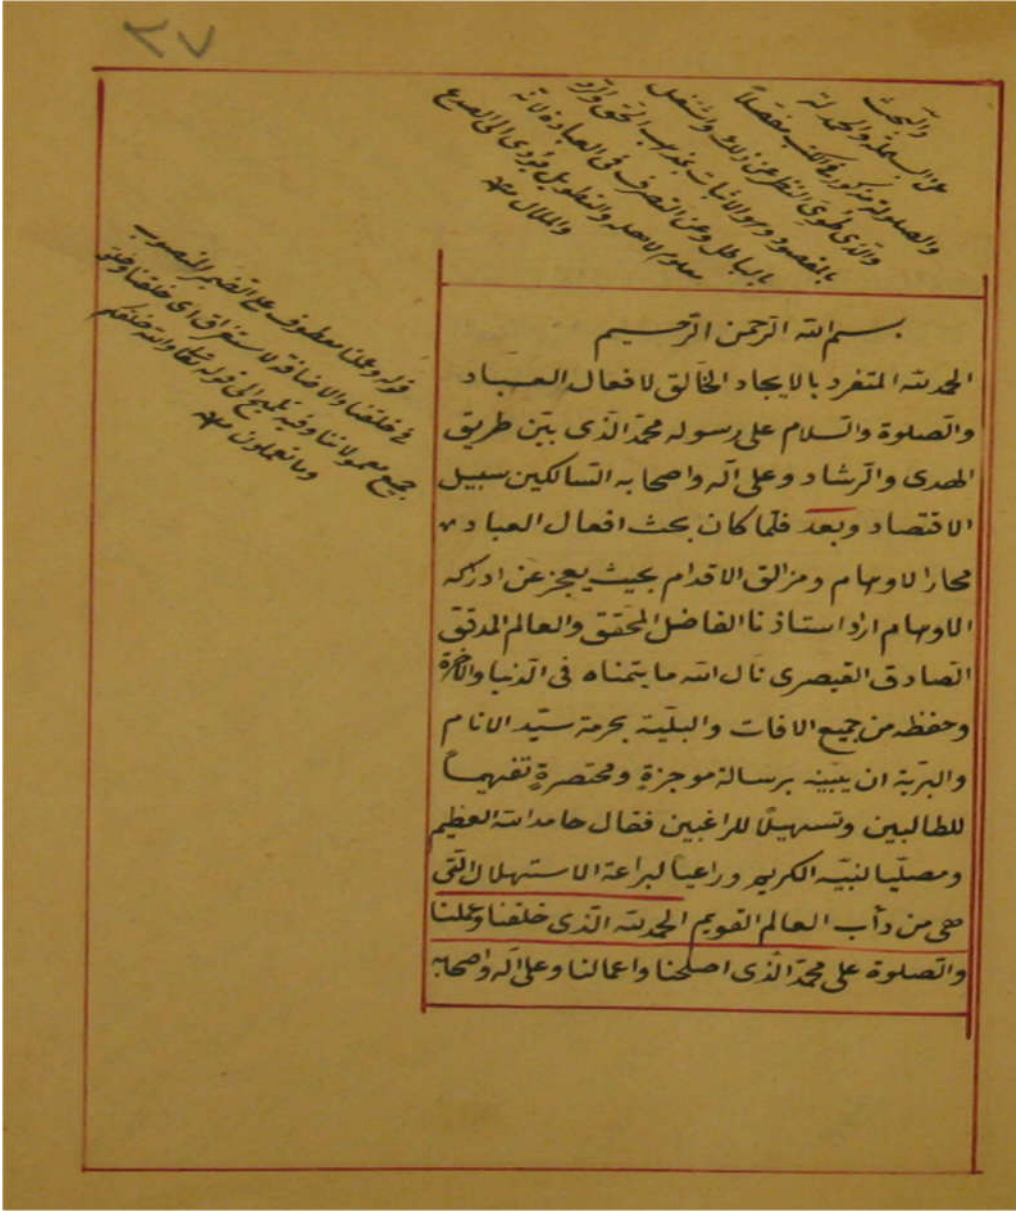 ٢٧
والبحث
عن البسملة والحمدلة
والصلوة مذكور فى الكتب مفصلاً
والذى طوى النظر عن ذلك واشتغل
بالمقصود وهو الاثبات بمذهب الحق والرد
بالباطل وعن التصرف فى العبادة لانه
معلوم لاهله والتطويل يؤدى الى الصداع
والملال منه
قوله وعملنا معطوف على الضمير المنصوب
فى خلقنا والاضافة لاستغراق اى خلقنا وخلق
جميع معمولاتنا وفيه تلميح الى قوله تعالى والله خلقكم
وما تعملون منه
بسم الله الرحمن الرحيم
الحمد لله المتفرد بالايجاد الخالق لافعال العباد
والصلوة والسلام على رسوله محمد الذى بين طريق
الهدى والرشاد وعلى آله واصحابه السالكين سبيل
الاقتصاد وبعد فلما كان بحث افعال العباد من
محار الاوهام ومزالق الاقدام بحيث يعجز عن ادراكه
الاوهام اراد استاذنا الفاضل المحقق والعالم المدقق
الصادق القيصرى نال الله ما يتمناه فى الدنيا والآخرة
وحفظه من جميع الافات والبلية بحرمة سيد الانام
والبرية ان يبينه برسالة موجزةٍ ومختصرةٍ تفهيماً
للطالبين وتسهيلاً للراغبين فقال حامدا لله العظيم
ومصليا لنبيه الكريم وراعياً لبراعة الاستهلال التى
هى من دأب العالم القويم الحمد لله الذى خلقنا وعملنا
والصلوة على محمد الذى اصلحنا واعمالنا وعلى آله واصحابه